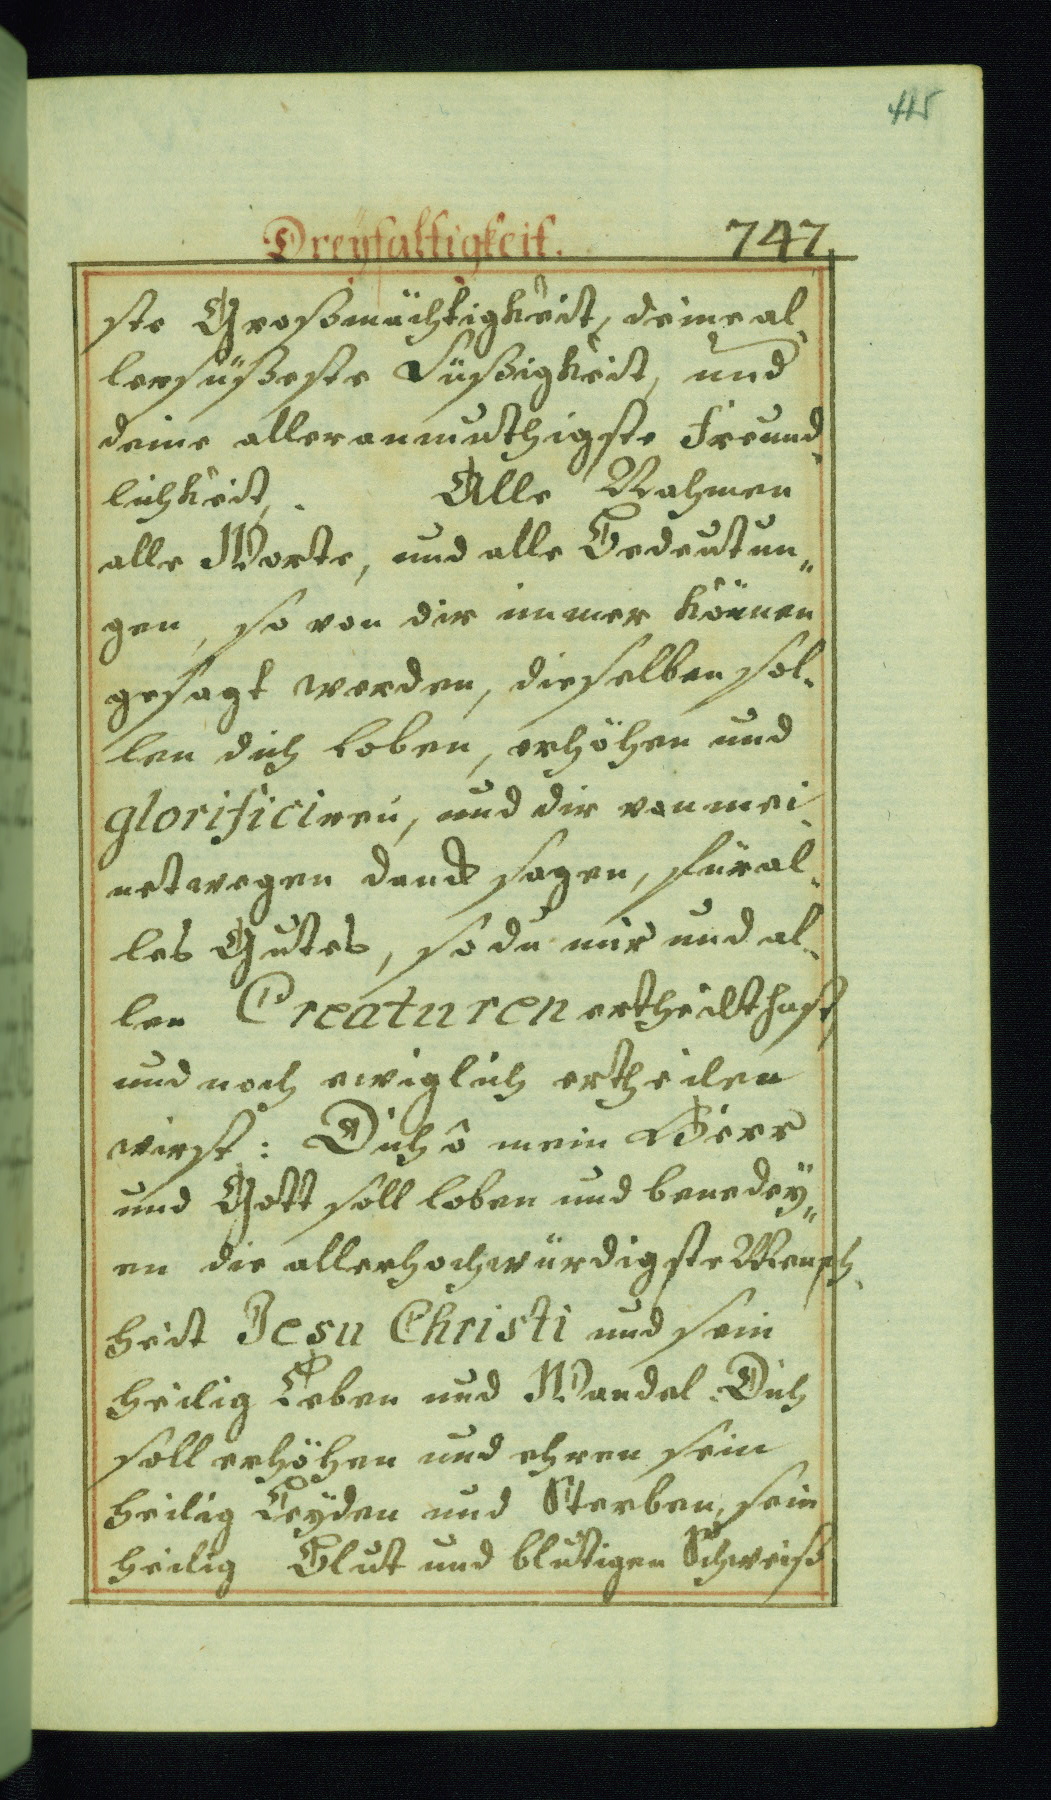 415
Dreyfaltigkeit. 747.
ste Großmächtigkeit, deine al-
lersüßeste Süßigkeit, und
deine alleranmuthigste Freund-
lichkeit. Alle Nahmen
alle Worte, und alle Bedeutun-
gen, so von dir immer können
gesagt werden, dieselben sol-
len dich loben, erhöhen und
glorificiren, und dir von mei-
netwegen danck sagen, für al-
les Gutes, so du mir und al-
len Creaturen ertheilt hast,
und noch ewiglich ertheilen
wirst: Dich ô mein Herr
und Gott soll loben und benedey-
en die allerhochwürdigste Mensch-
heit Jesu Christi und sein
heilig Leben und Wandel. Dich
soll erhöhen und ehren sein
heilig Leyden und Sterben, sein
heilig Blut und blutigen Schweiß